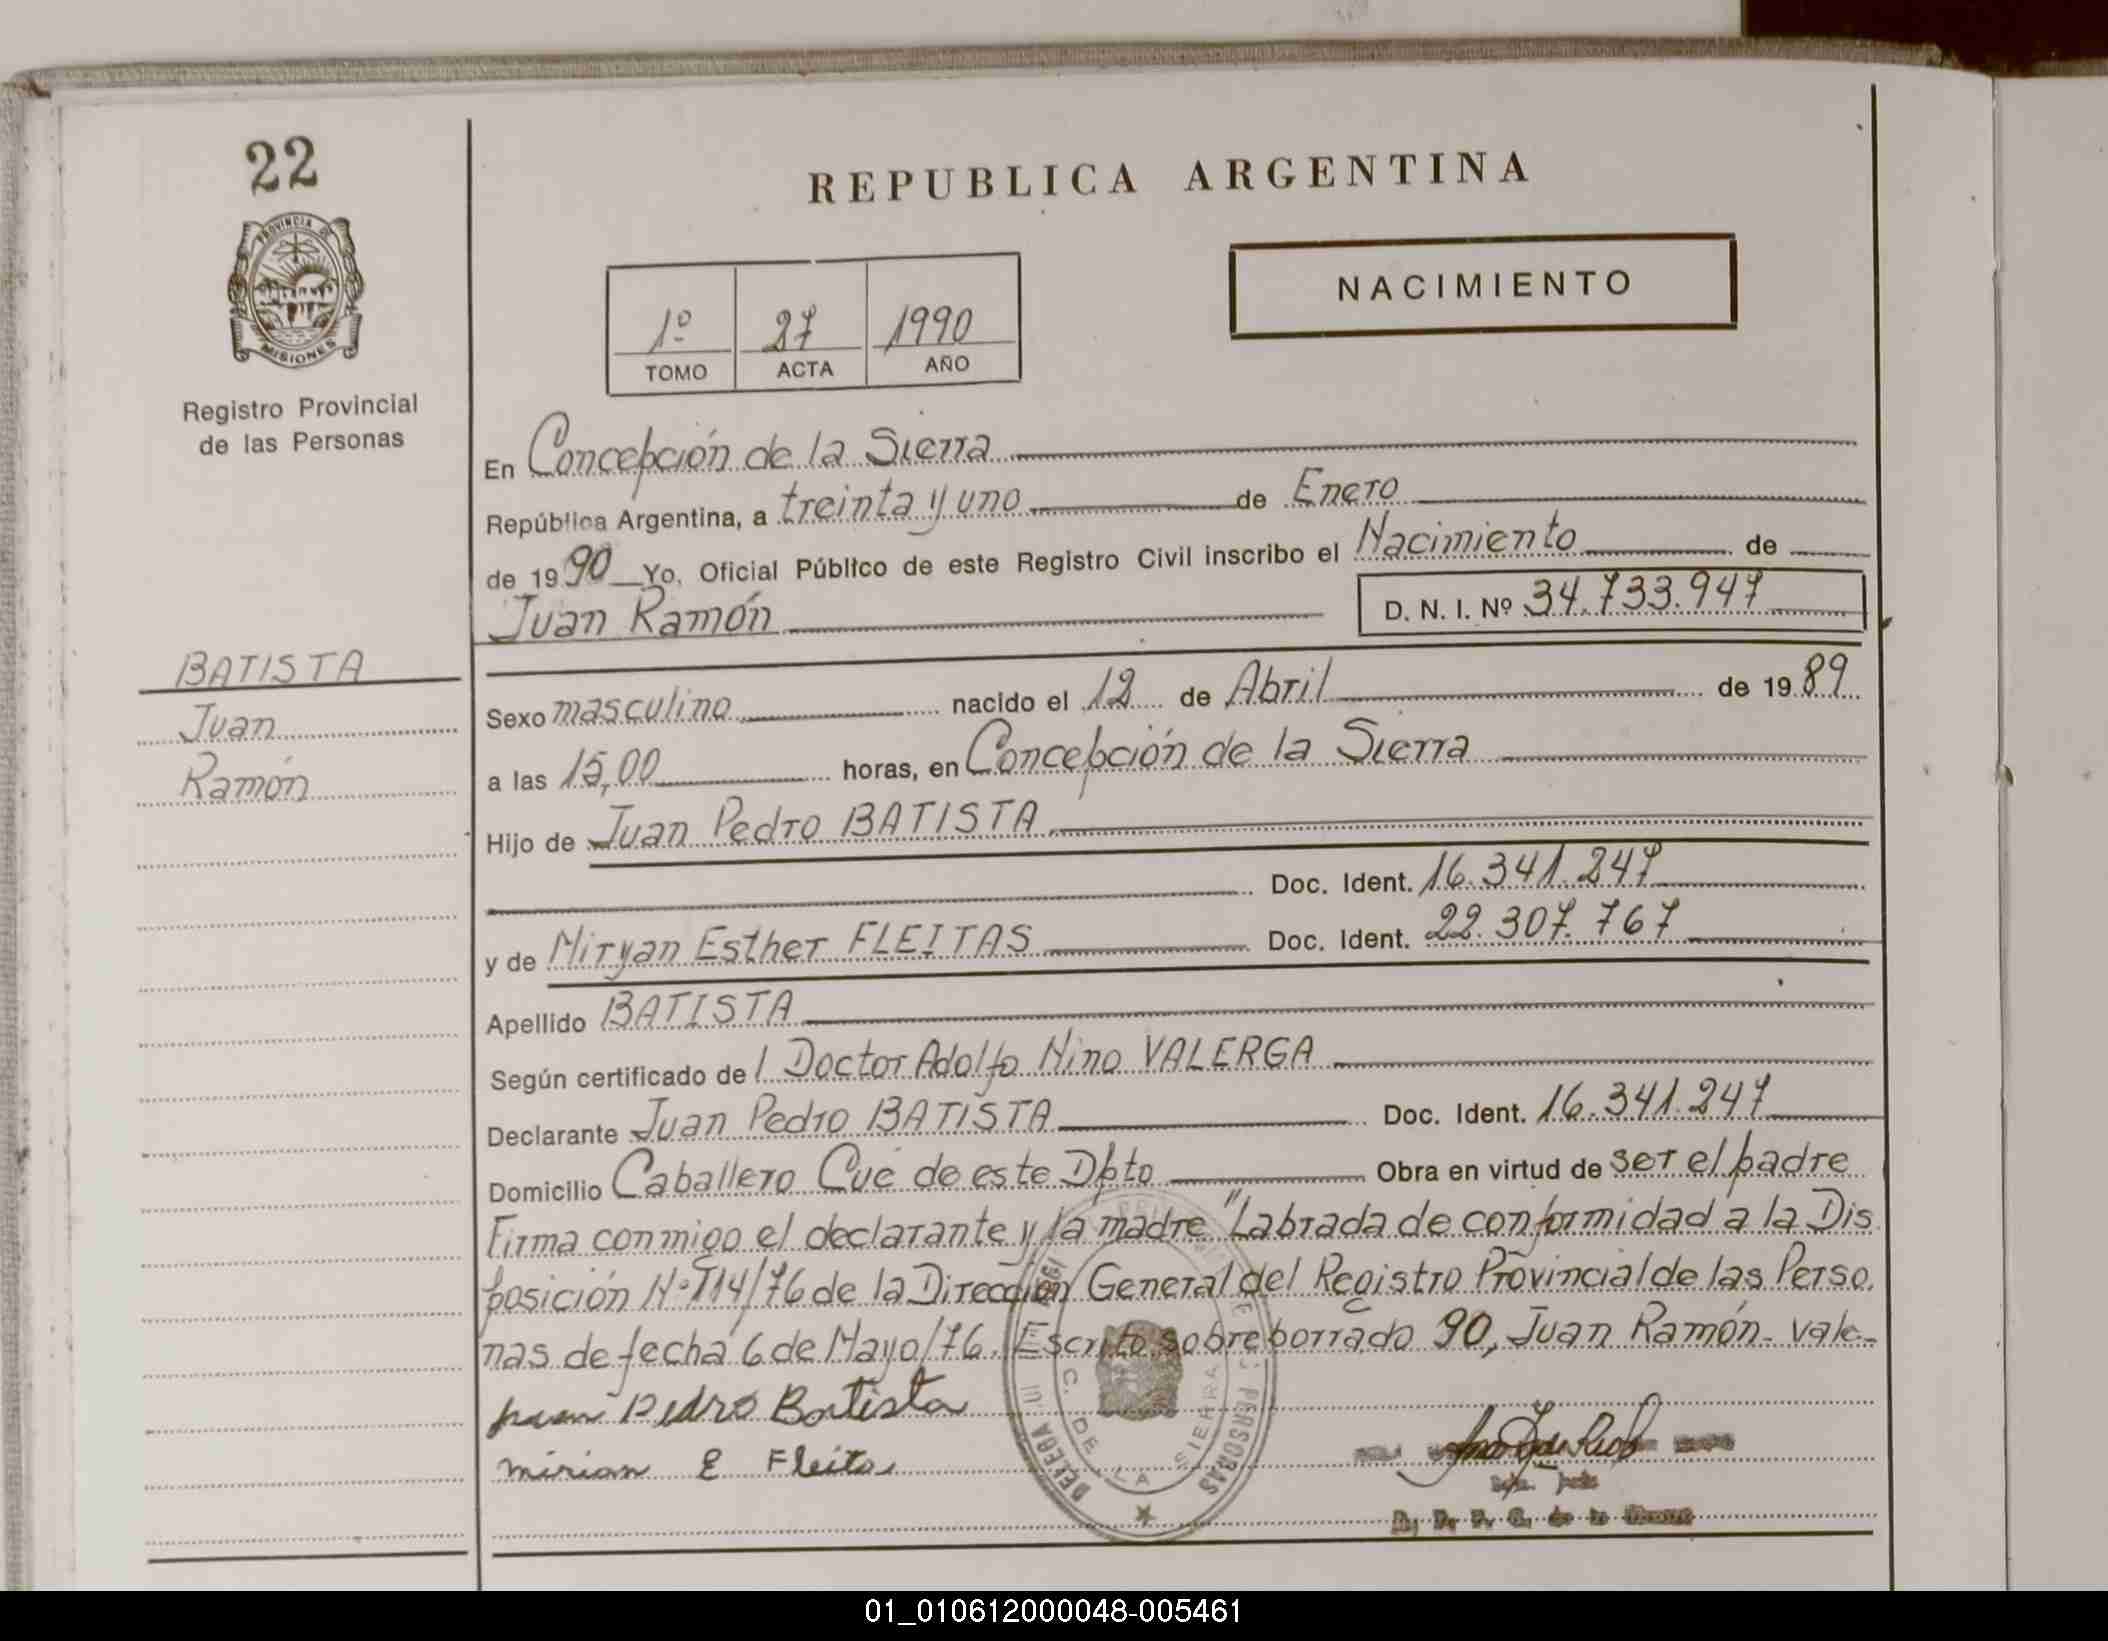 22
PROVINCIA DE
MISIONES
Registro Provincial
de las Personas
BATISTA
Juan
Ramón
REPUBLICA ARGENTINA
NACIMIENTO
1º 27 1990
TOMO ACTA AÑO
En Concepción de la Sierra
República Argentina, a treinta y uno de Enero
de 1990 Yo, Oficial Público de este Registro Civil inscribo el Nacimiento de
Juan Ramón D. N. I. Nº 34.733.947
Sexo masculino nacido el 12 de Abril de 1989
a las 15,00 horas, en Concepción de la Sierra
Hijo de Juan Pedro BATISTA
Doc. Ident. 16.341.247
y de Miryan Esther FLEITAS Doc. Ident. 22.307.767
Apellido BATISTA
Según certificado del Doctor Adolfo Nino VALERGA
Declarante Juan Pedro BATISTA Doc. Ident. 16.341.247
Domicilio Caballero Cué de este Dpto Obra en virtud de ser el padre
Firma conmigo el declarante y la madre "Labrada de conformidad a la Dis
posición Nº 114/76 de la Dirección General del Registro Provincial de las Perso.
nas de fecha 6 de Mayo/76. Escrito sobreborrado 90, Juan Ramón. Vale.-
Juan Pedro Batista
Mirian E Fleita
C. DE LA SIERRA
PERSONAS
01_010612000048-005461